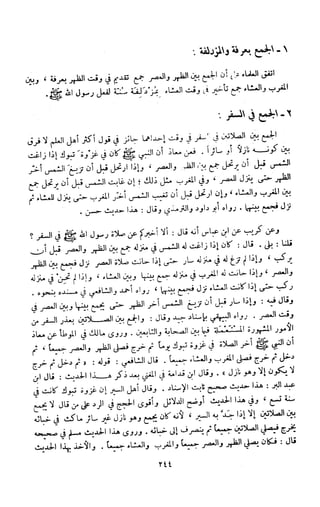 ١ - الجمع بعرفة والمزدلفة :
اتفق العلماء أن الجمع بين الظهر والعصر جمع تقديم في وقت الظهر بعرفة ، وبين
المغرب والعشاء جمع تأخير في وقت العشاء بمزدلفة سنة لفعل رسول الله ﷺ .
٢ - الجمع في السفر :
الجمع بين الصلاتين في السفر في وقت إحداهما جائز في قول أكثر أهل العلم لا فرق
بين كونه نازلاً أو سائراً . فعن معاذ أن النبي ﷺ كان في غزوة تبوك إذا زاغت
الشمس قبل أن يرتحل جمع بين الظهر والعصر ، وإذا ارتحل قبل أن تزيغ الشمس أخر
الظهر حتى ينزل للعصر ، وفي المغرب مثل ذلك ؛ إن غابت الشمس قبل أن يرتحل جمع
بين المغرب والعشاء ، وإن ارتحل قبل أن تغيب الشمس أخر المغرب حتى ينزل للعشاء ثم
نزل فجمع بينها . رواه أبو داود والترمذي وقال : هذا حديث حسن .
وعن كريب عن ابن عباس أنه قال : ألا أخبركم عن صلاة رسول الله ﷺ في السفر ؟
قلنا : بلى . قال : كان إذا زاغت له الشمس في منزله جمع بين الظهر والعصر قبل أن
يركب ، وإذا لم تزغ له في منزله سار حتى إذا حانت صلاة العصر نزل فجمع بين الظهر
والعصر ، وإذا حانت له المغرب في منزله جمع بينها وبين العشاء ، وإذا لم تحن في منزله
ركب حتى إذا كانت العشاء نزل فجمع بينها ، رواه أحمد والشافعي في مسنده بنحوه .
وقال فيه : وإذا سار قبل أن تزيغ الشمس أخر الظهر حتى يجمع بينها وبين العصر في
وقت العصر . رواه البيهقي بإسناد جيد وقال : والجمع بين الصلاتين بعذر السفر من
الأمور المشهورة المستعملة فيما بين الصحابة والتابعين . وروى مالك في الموطأ عن معاذ
أن النبي ﷺ أخر الصلاة في غزوة تبوك يوماً ثم خرج فصلى الظهر والعصر جميعاً ، ثم
دخل ثم خرج فصلى المغرب والعشاء جميعاً . قال الشافعي : قوله : ثم دخل ثم خرج
لا يكون إلا وهو نازل . وقال ابن قدامة في المغني بعد ذكر هذا الحديث : قال ابن
عبد البر : هذا حديث صحيح ثابت الإسناد . وقال أهل السير إن غزوة تبوك كانت في
سنة تسع ، وفي هذا الحديث أوضح الدلائل وأقوى الحجج في الرد على من قال لا يجمع
بين الصلاتين إلا إذا جد به السير ، لأنه كان يجمع وهو نازل غير سائر ماكث في خبائه
يخرج فيصلي الصلاتين جميعاً ثم ينصرف إلى خبائه . وروى هذا الحديث مسلم في صحيحه
قال : فكان يصلي الظهر والعصر جميعاً والمغرب والعشاء جميعاً . والأخذ بهذا الحديث
٢٤٤